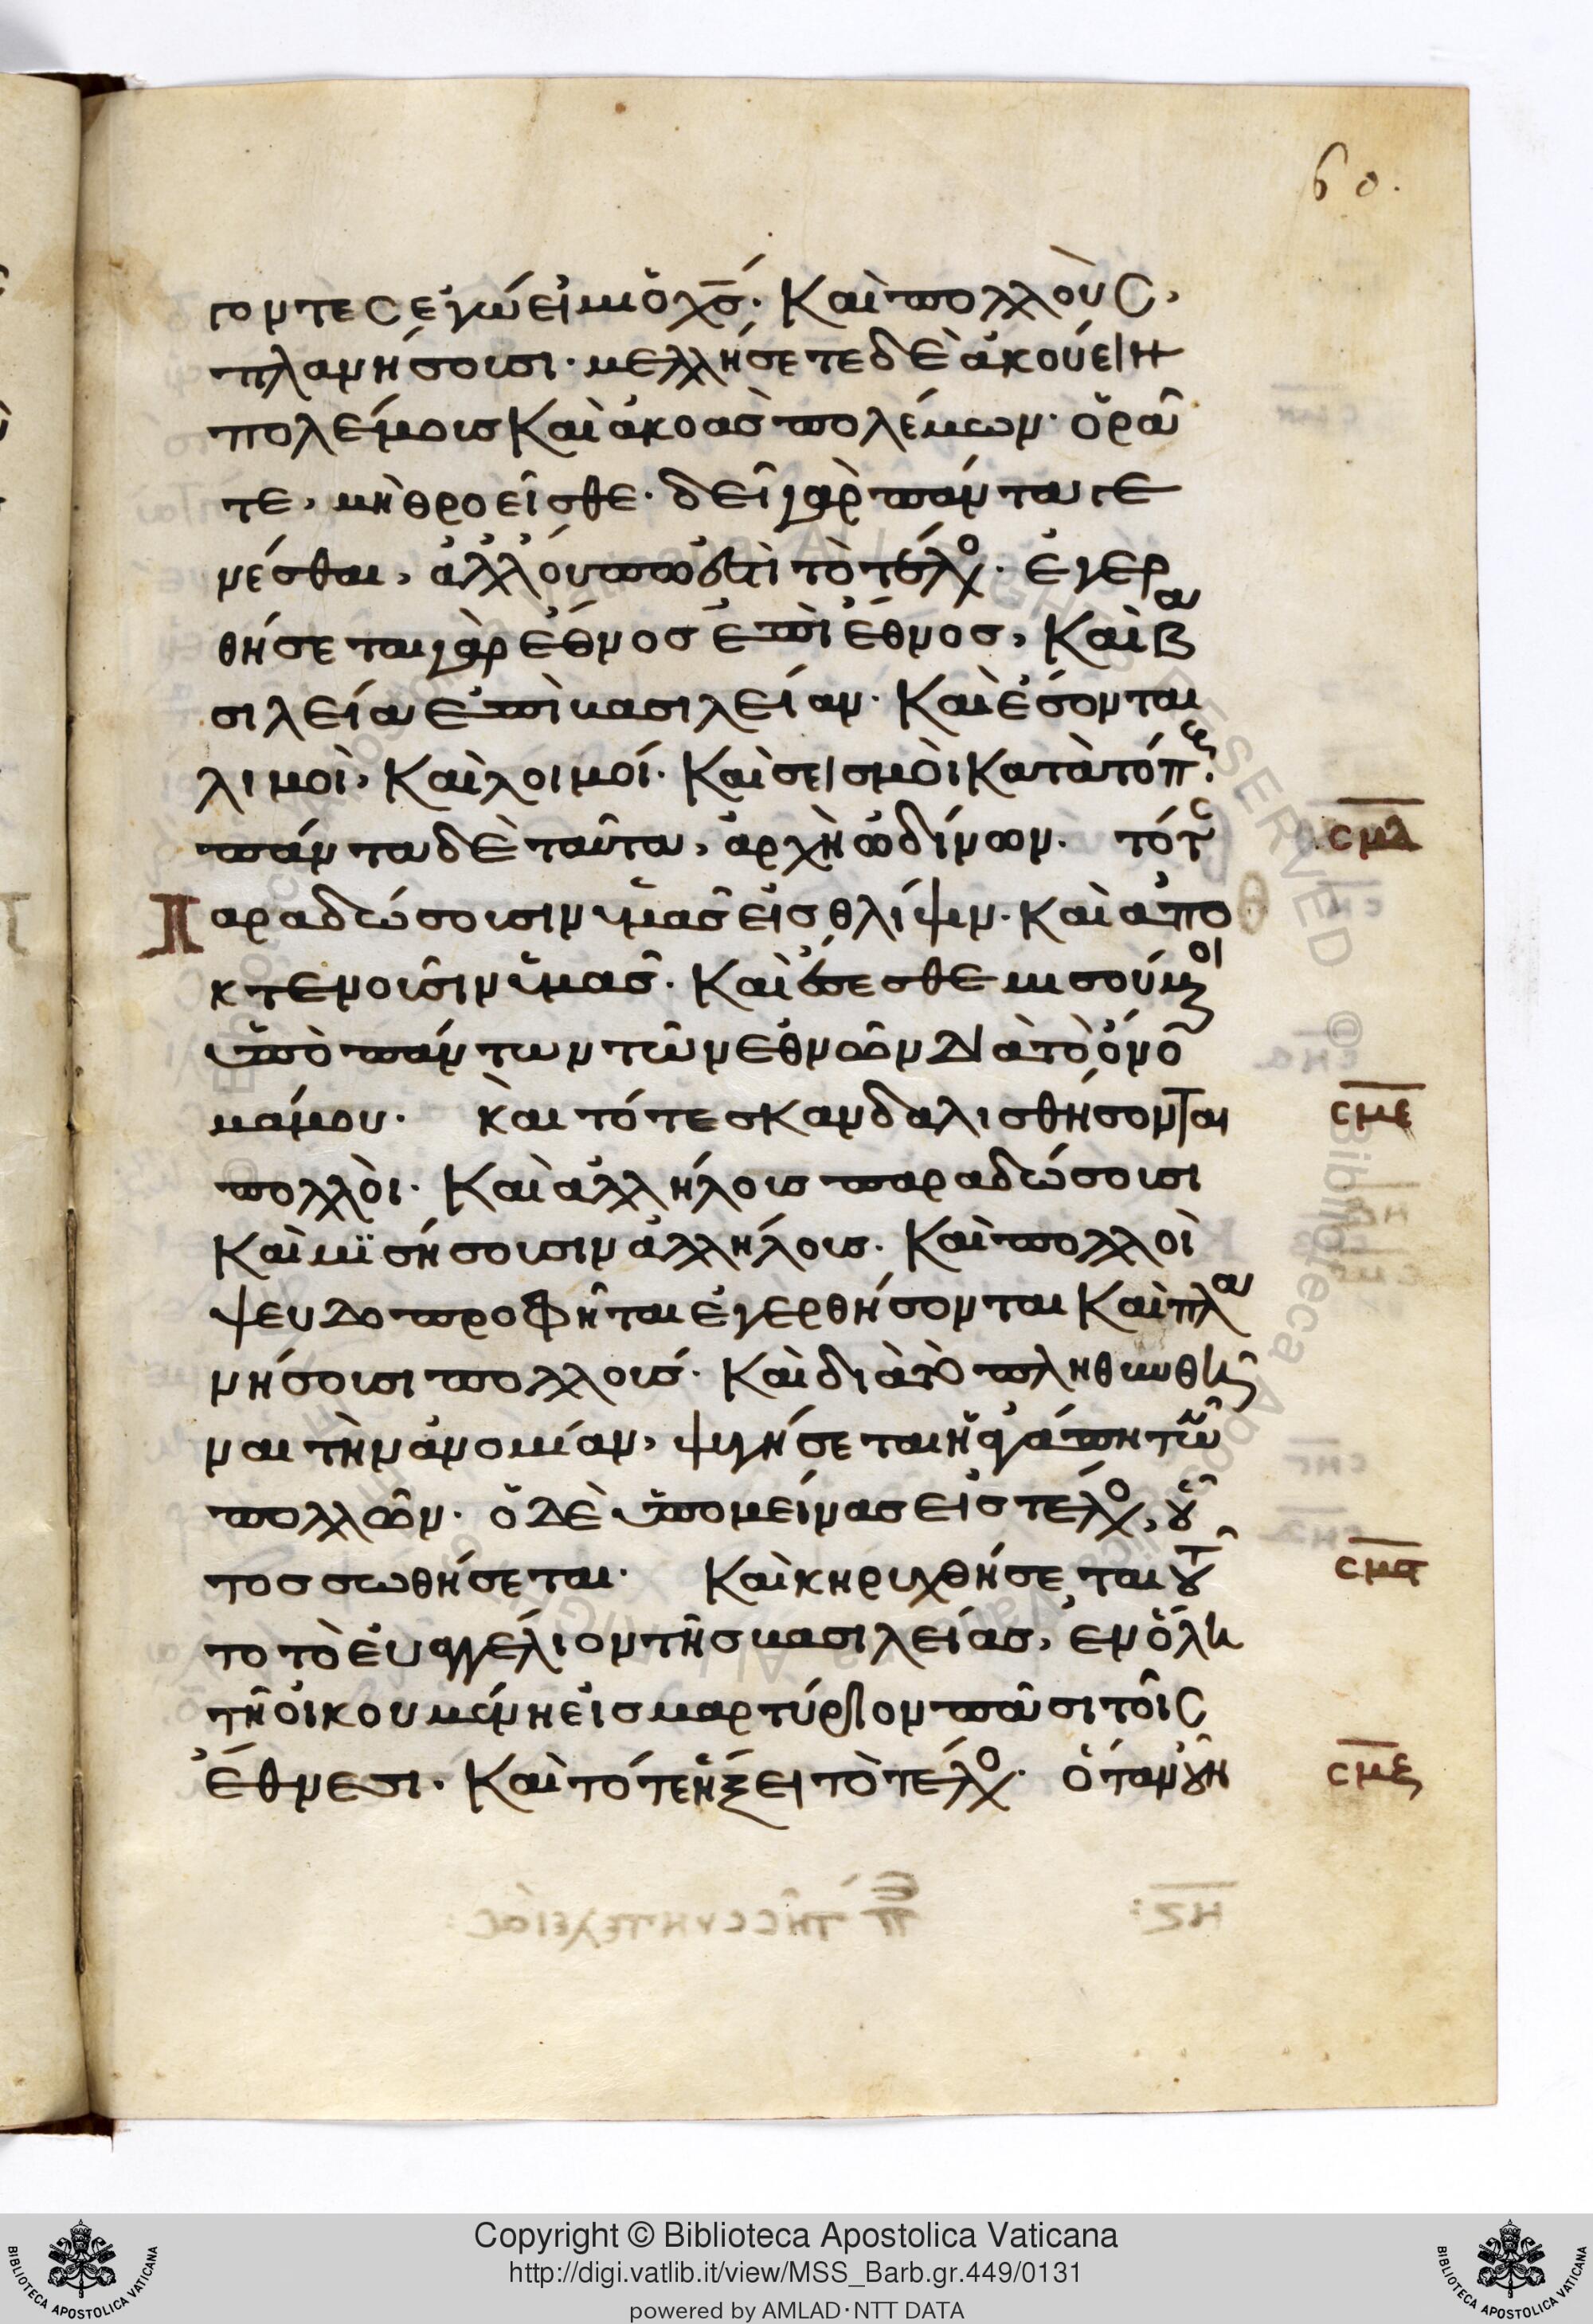 60.
γοντες ἐγώ εἰμι ὁ χ̅σ̅· Καὶ πολλοὺς,
πλανήσουσι· μελλήσετε δὲ ἀκούειν
πολέμους Καὶ ἀκοὰς πολέμων· ὁρᾶ
τε, μὴ θροεῖσθε· δεῖ γὰρ πάντα γε
νέσθαι, ἀλλ' οὔπω ἐστὶ τὸ τέλο· ἐγερ
θήσεται γὰρ ἔθνος ἐπὶ ἔθνος, Καὶ βα
σιλεία ἐπὶ βασιλείαν· Καὶ ἔσονται
λιμοὶ, Καὶ λοιμοί· Καὶ σεισμοὶ Κατὰ τόπ
πάντα δὲ ταῦτα, ἀρχὴ ὠδίνων· τότε
σμδ
Παραδώσουσιν ὑμᾶς εἰς θλίψιν· καὶ ἀπο
κτενοῦσιν ὑμᾶς· Καὶ ἔσεσθε μισούμ οι
ὑπὸ πάντων τῶν ἐθνῶν διὰ τὸ ὄνο
μά μου· καὶ τότε σκανδαλισθήσονται
σμε
πολλοὶ· Καὶ ἀλλήλους παραδώσουσι
Καὶ μϊσήσουσιν ἀλλήλους· Καὶ πολλοὶ
ψευδοπροφῆται ἐγερθήσονται Καὶ πλα
νήσουσι πολλούς· Καὶ διὰ τὸ πληθυνθῆ
ναι τὴν ἀνομίαν, ψυγήσεται ἡ ἀγάπη τῶ
πολλῶν· ὁ δὲ ὑπομείνας εἰς τέλο, οὗ
τος σωθήσεται· Καὶ κηρυχθήσεται τοῦ
σμς
το τὸ εὐαγγέλιον τῆς βασιλείας, ἐν ὅλη
τῆ οἰκουμένη εἰς μαρτύριον πᾶσι τοῖς
ἔθνεσι· Καὶ τότε ἥξει τὸ τέλο· ὅταν οὖν
σμζ
Copyright © Biblioteca Apostolica Vaticana
http://digi.vatlib.it/view/MSS_Barb.gr.449/0131
powered by AMLAD·NTT DATA